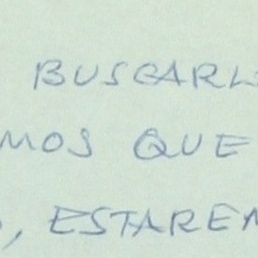 BUSCARL
MOS QUE
, ESTAREM